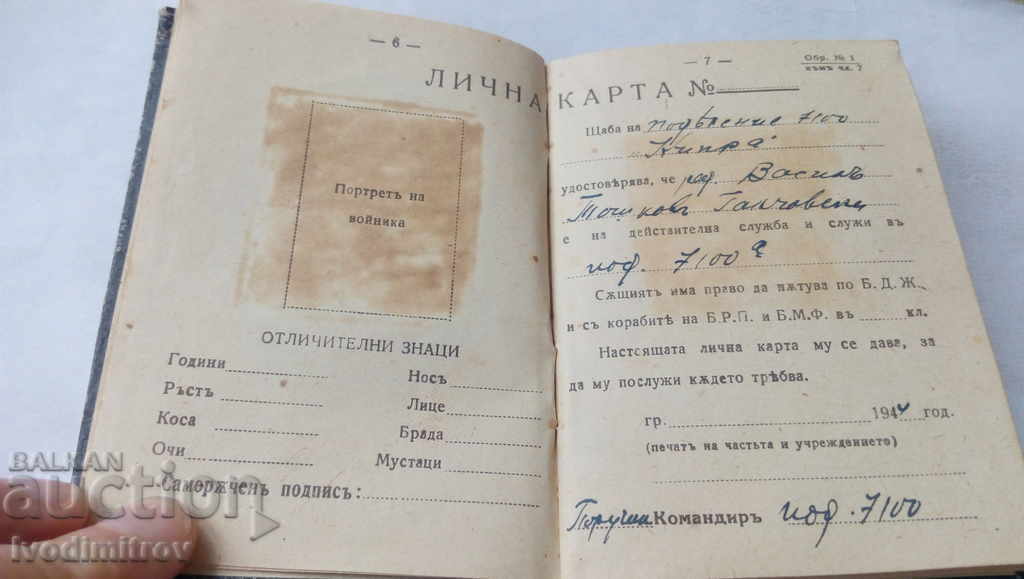 — 6 —
ЛИЧНА
Портретъ на
войника
ОТЛИЧИТЕЛНИ ЗНАЦИ
Години
Носъ
Ръстъ
Лице
Коса
Брада
Очи
Мустаци
Саморѫченъ подписъ:
— 7 —
Обр. № 1
къмъ чл. 7
КАРТА №
Щаба на 7100
удостовѣрява, че Василъ
е на действителна служба и служи въ
под. 7100
Сѫщиятъ има право да пѫтува по Б. Д. Ж.
и съ корабитѣ на Б.Р.П. и Б.М.Ф. въ кл.
Настоящата лична карта му се дава, за
да му послужи кѫдето трѣбва.
гр. 1944 год.
(печатъ на частьта и учреждението)
Командиръ под. 7100
BALKAN
auction
ivodimitrov